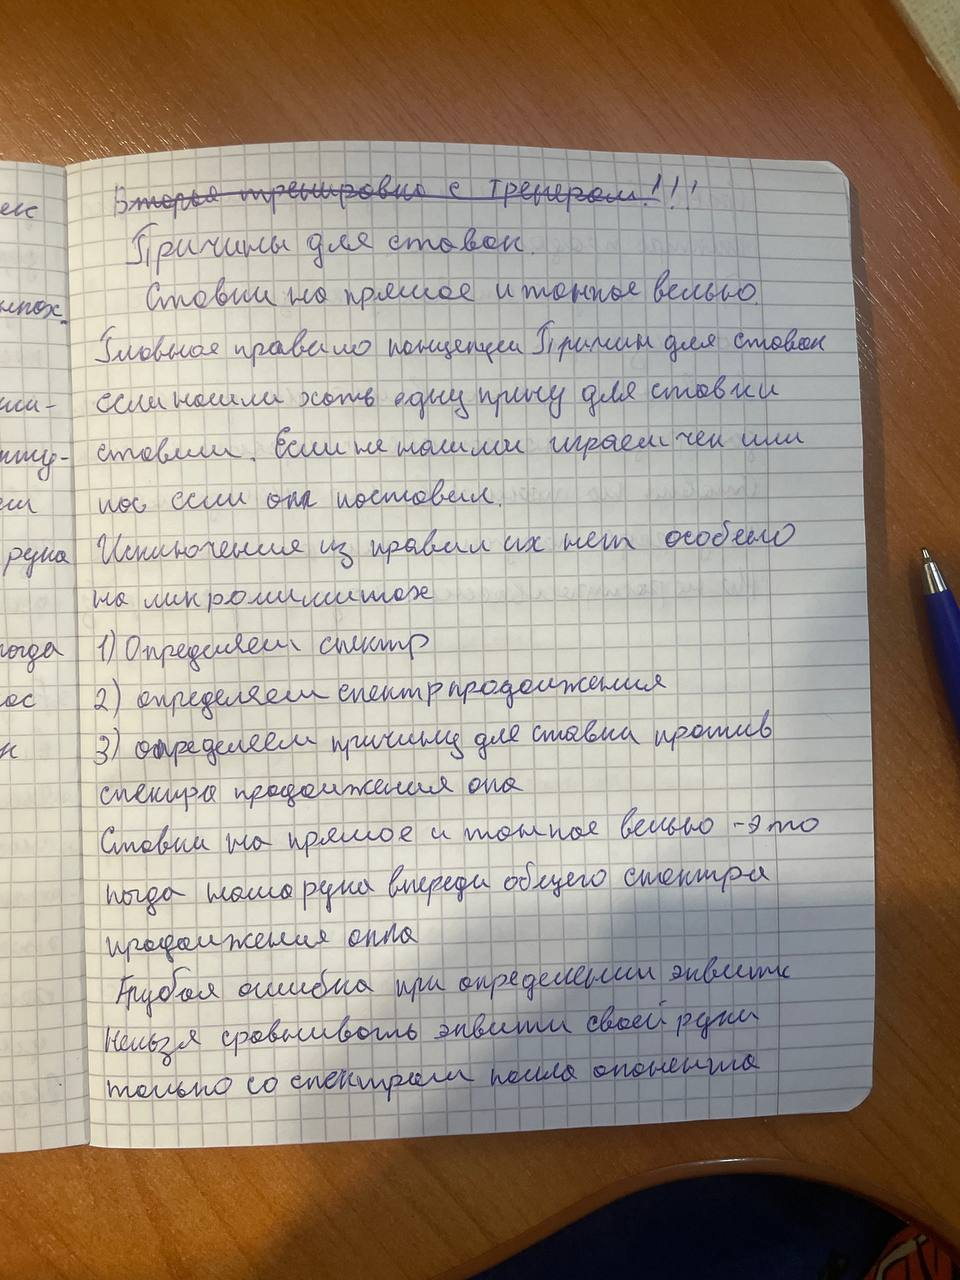 Вторая тренировка с тренером!!!
Причины для ставок.
Ставки на прямое и тонкое велью.
Главное правило концепции Причин для ставок
если нашли хоть одну прину для ставки
ставим. Если не нашли играем чек или
кол если опп поставил.
Исключения из правил их нет особено
на микролимитах
1) Определяем спектр
2) определяем спектр продолжения
3) определяем причину для ставки против
спектра продолжения опа
Ставки на прямое и тонкое велью - это
когда наша рука впереди общего спектра
продолжения оппа
Грубая ошибка при определении эквити
нельзя сравнивать эквити своей руки
только со спектрам колла опонента
елс
ши-
ем
рука
когда